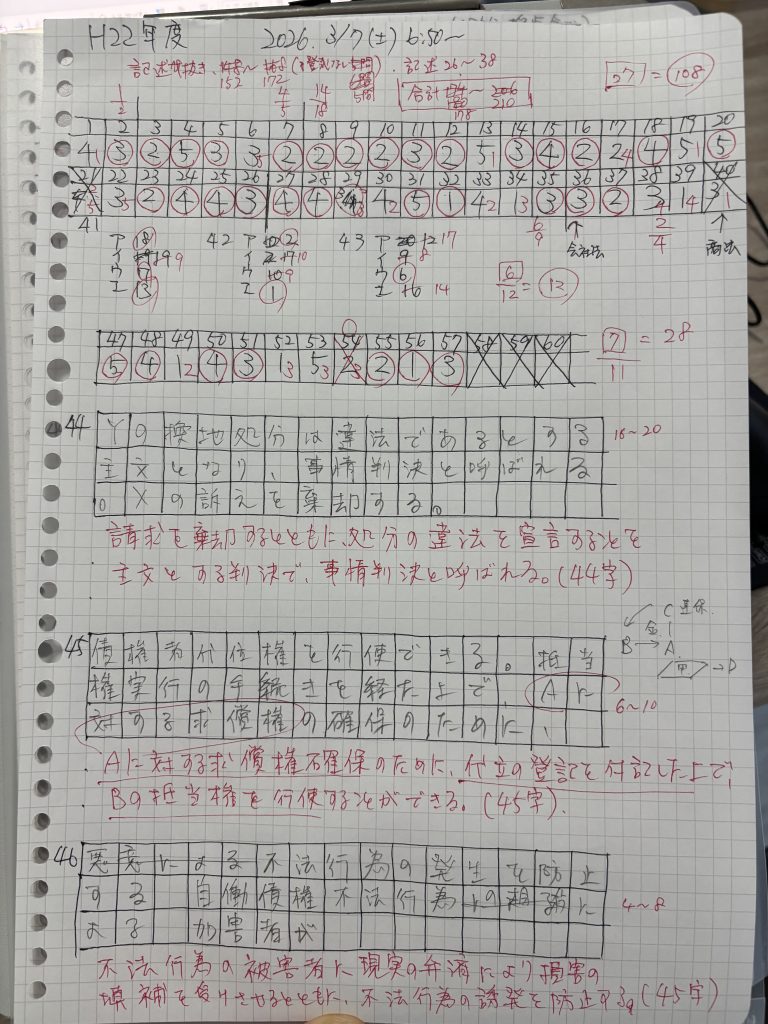 H22年度 2026. 3/7(土) 6:50~
記述 26~38
27 = 108
152 172
4/5 14/18
合計
178 210
1/2
1 2 3 4 5 6 7 8 9 10 11 12 13 14 15 16 17 18 19 20
4 1 3 2 5 3 3 2 2 2 2 3 2 5 1 3 4 2 2 4 4 5 1 5
21 22 23 24 25 26 27 28 29 30 31 32 33 34 35 36 37 38 39 40
3 5 2 4 4 3 4 4 4 2 5 1 4 2 1 3 3 3 2 3 1 4 3 1
6/9 ↑ 会社法 2/4 ↑ 商法
41 ア 18 42 ア 2 43 ア 12 17
イ 9 イ 10 イ 9 8
ウ 7 ウ 9 ウ 6
エ 13 エ 1 エ 16 14
6/12 = 12
47 48 49 50 51 52 53 54 55 56 57 58 59 60
5 4 1 2 4 3 1 3 5 3 2 3 2 1 3
7/11 = 28
44 Yの換地処分は違法であるとする
主文となり、事情判決と呼ばれる
。Xの訴えを棄却する。
16~20
請求を棄却するとともに、処分の違法を宣言することを
主文とする判決で、事情判決と呼ばれる。(44字)
45 債権者代位権を行使できる。抵当
権実行の手続きを経た上で、Aに
対する求償権の確保のために、
6~10
C 連保
金
B→A
甲→D
Aに対する求償権確保のために、代位の登記を付記した上で、
Bの抵当権を行使することができる。(45字)
46 悪意による不法行為の発生を防止
する 自働債権 不法行為 の相殺に
よる 加害者が
4~8
不法行為の被害者に現実の弁済により損害の
填補を受けさせるとともに、不法行為の誘発を防止する。(45字)